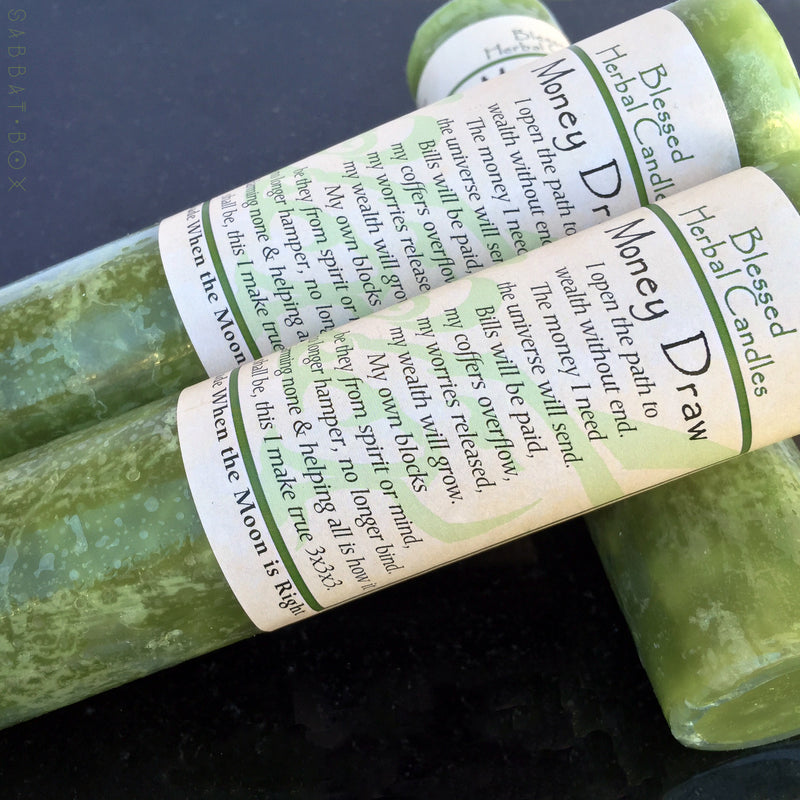 SABBAT·BOX
Blessed
Herbal
Blessed
Herbal Candles
Money
I open the path to
wealth without end
The money I need
the universe will
Bills will be paid,
my coffers
my worries
my wealth will
My own blocks
be they from spirit or
longer hamper, no
none & helping
be, this I make true
When the Moon
Blessed
Herbal Candles
Money Draw
I open the path to
wealth without end.
The money I need
the universe will send.
Bills will be paid,
my coffers overflow,
my worries released,
my wealth will grow.
My own blocks
be they from spirit or mind,
longer hamper, no longer bind.
none & helping all is how it
be, this I make true 3x3x3.
When the Moon is Right